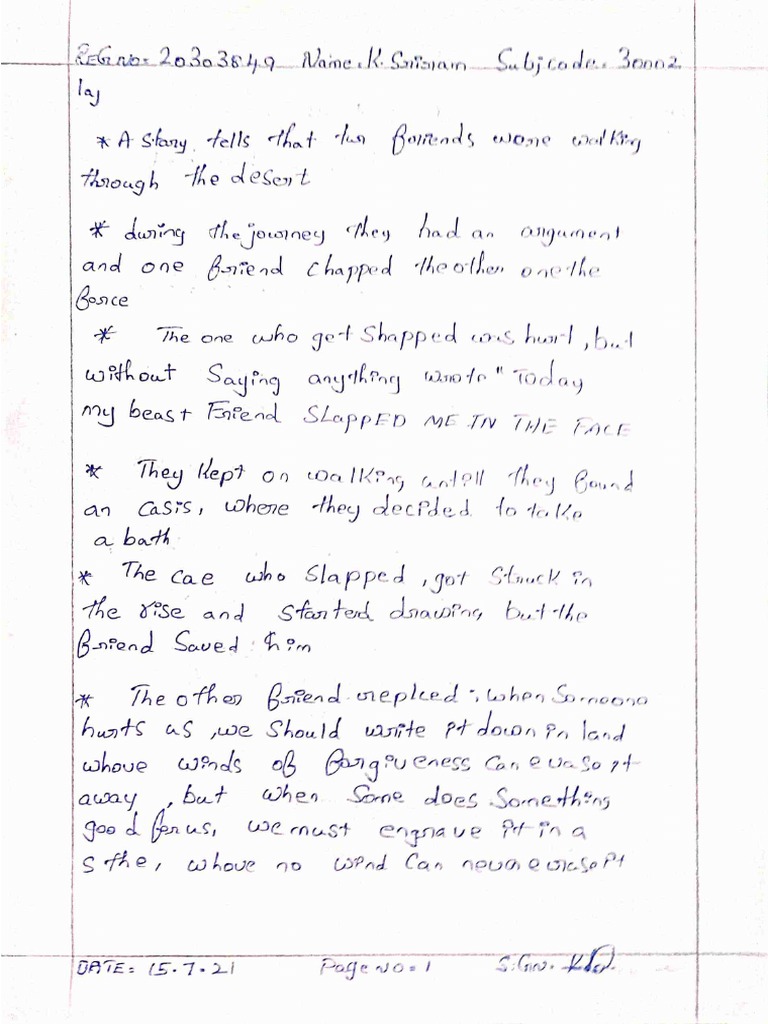 REG NO: 20303849 Name: K. Sriram Subj code: 30002
1a)
* A Story tells that two friends were walking
through the desert
* during the journey they had an argument
and one friend chapped the other one the
force
* The one who get Shapped was hurt, but
without Saying anything wrote " Today
my beast Friend SLAPPED ME IN THE FACE
* They kept on walking untill they found
an casis, where they decided to take
a bath
* The cae who slapped, got struck in
the rise and started drawing, but the
friend Saved him
* The other friend replced :, when Someone
hurts as, we should write it down in land
whove winds of forgiveness can evase it
away, but when Some does Something
good for us, we must engrave it in a
sthe, whove no wind can never evase it
DATE: 15.7.21 Page NO: 1 SIGN.